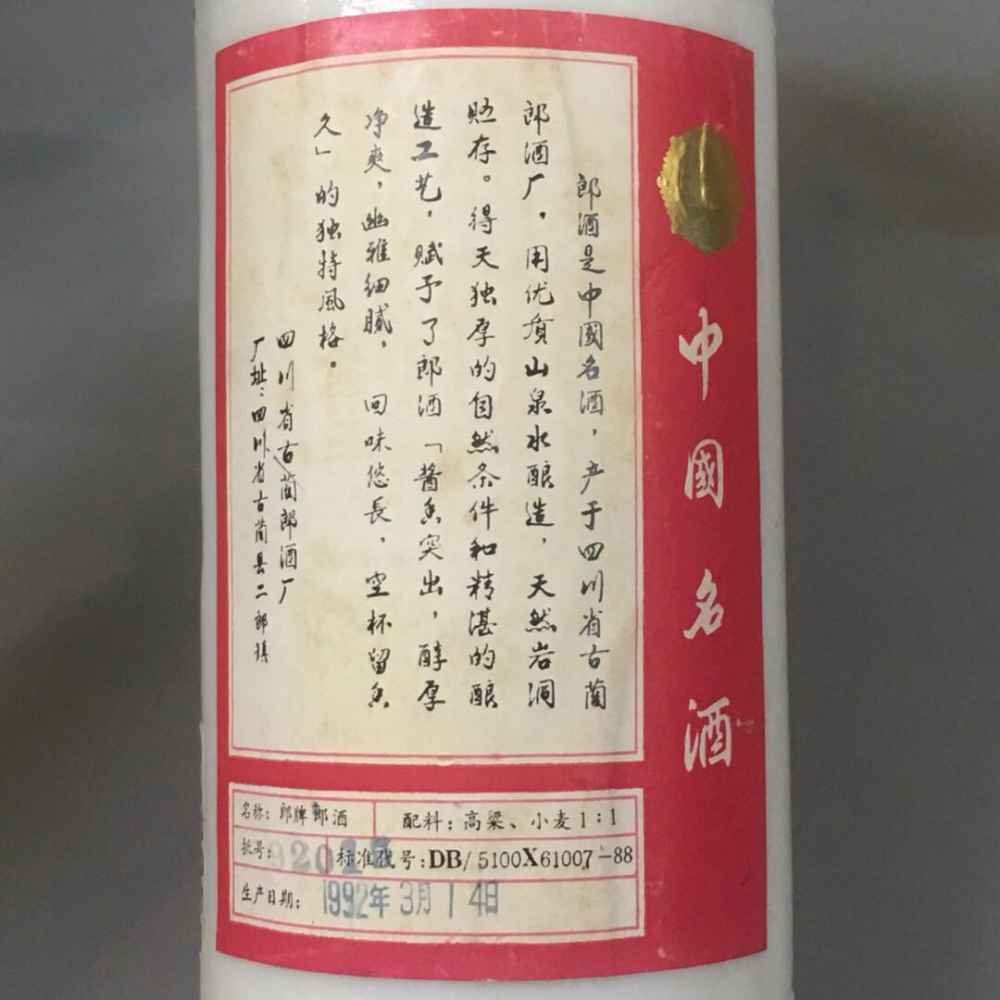 中國名酒
郎酒是中國名酒，产于四川省古蔺
郎酒厂，用优质山泉水酿造，天然岩洞
贮存。得天独厚的自然条件和精湛的酿
造工艺，赋予了郎酒「酱香突出，醇厚
净爽，幽雅细腻，回味悠長，空杯留香
久」的独特風格。
四川省古蔺郎酒厂
厂址：四川省古蔺县二郎镇
名称：郎牌郎酒 配料：高粱、小麦1：1
批号： 标准代号：DB/5100X61007-88
生产日期：1992年3月14日